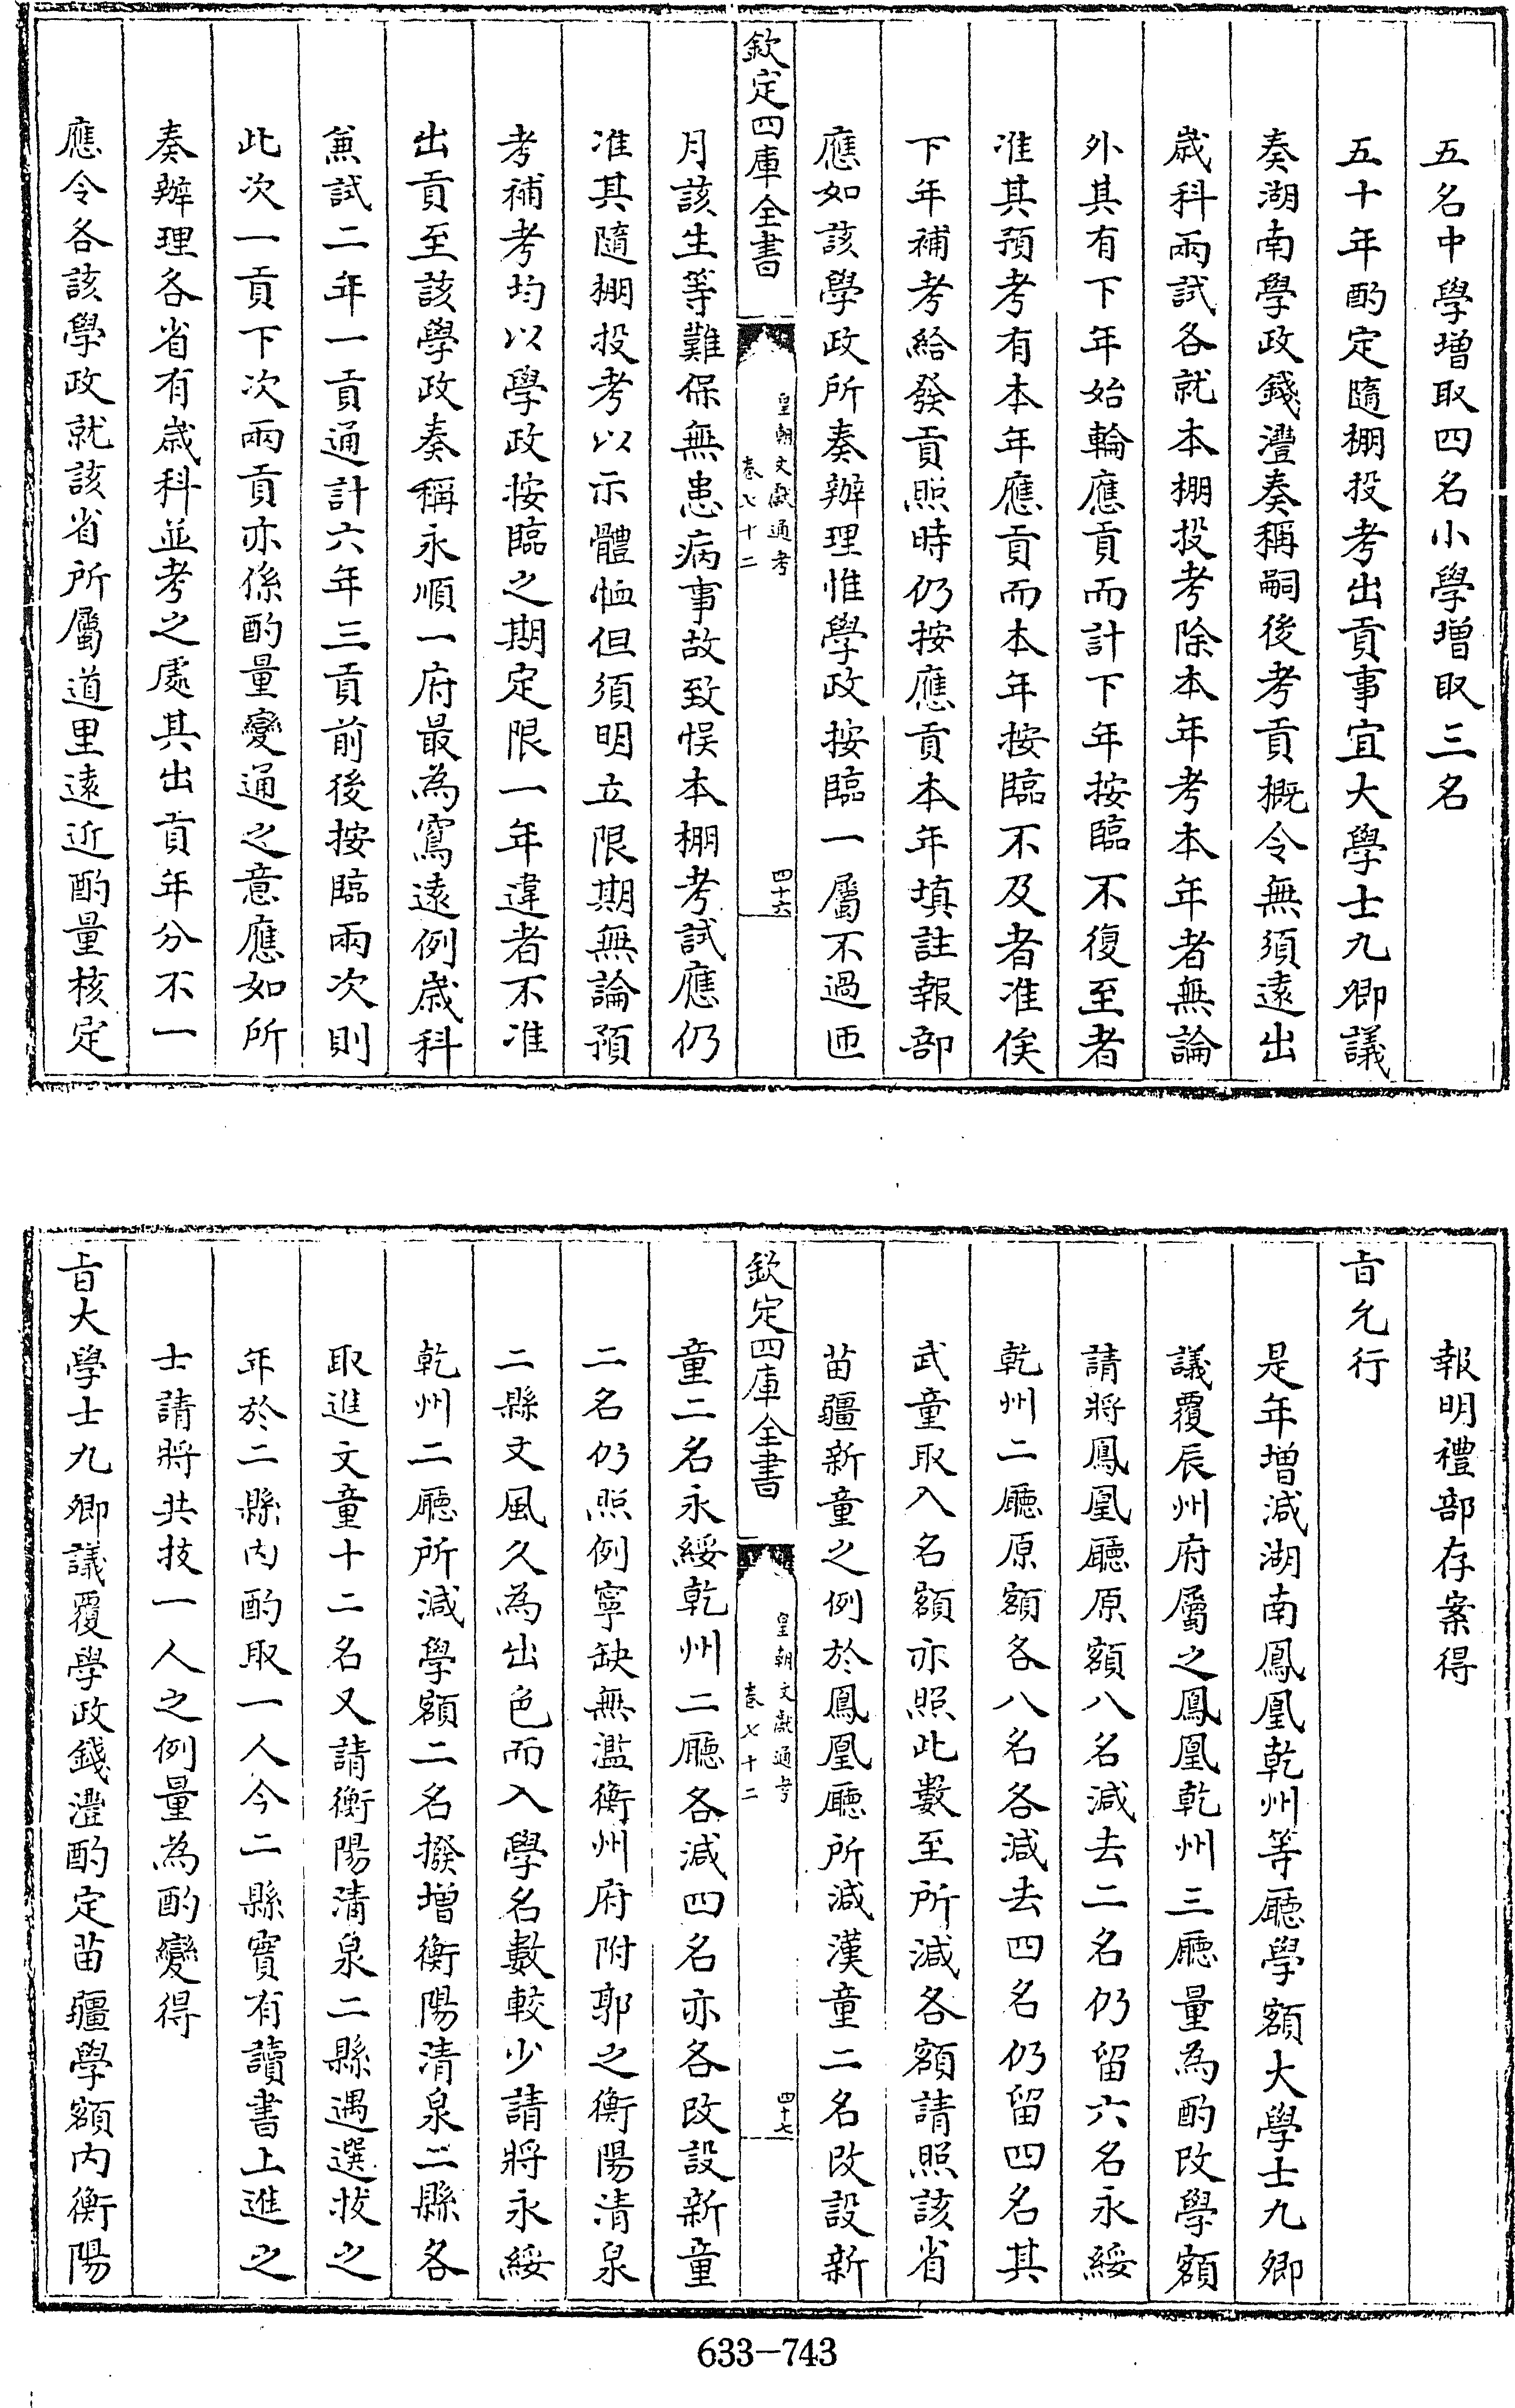 五名中學增取四名小學增取三名
五十年酌定隨棚投考出貢事宜大學士九卿議
奏湖南學政錢灃奏稱嗣後考貢概令無須遠出
歲科兩試各就本棚投考除本年考本年者無論
外其有下年始輪應貢而計下年按臨不復至者
准其預考有本年應貢而本年按臨不及者准俟
下年補考給發貢照時仍按應貢本年填註報部
應如該學政所奏辦理惟學政按臨一屬不過匝
欽定四庫全書
皇朝文獻通考
卷七十二
四十六
月該生等難保無患病事故致悮本棚考試應仍
准其隨棚投考以示體恤但須明立限期無論預
考補考均以學政按臨之期定限一年違者不准
出貢至該學政奏稱永順一府最為窵遠例歲科
兼試二年一貢通計六年三貢前後按臨兩次則
此次一貢下次兩貢亦係酌量變通之意應如所
奏辦理各省有歲科並考之處其出貢年分不一
應令各該學政就該省所屬道里遠近酌量核定
報明禮部存案得
旨允行
是年增減湖南鳳凰乾州等廳學額大學士九卿
議覆辰州府屬之鳳凰乾州三廳量為酌改學額
請將鳳凰廳原額八名減去二名仍留六名永綏
乾州二廳原額各八名各減去四名仍留四名其
武童取入名額亦照此數至所減各額請照該省
苗疆新童之例於鳳凰廳所減漢童二名改設新
欽定四庫全書
皇朝文獻通考
卷七十二
四十七
童二名永綏乾州二廳各減四名亦各改設新童
二名仍照例寧缺無濫衡州府附郭之衡陽清泉
二縣文風久為出色而入學名數較少請將永綏
乾州二廳所減學額二名撥增衡陽清泉二縣各
取進文童十二名又請衡陽清泉二縣遇選拔之
年於二縣內酌取一人今二縣實有讀書上進之
士請將共技一人之例量為酌變得
旨大學士九卿議覆學政錢灃酌定苗疆學額內衡陽
633-743